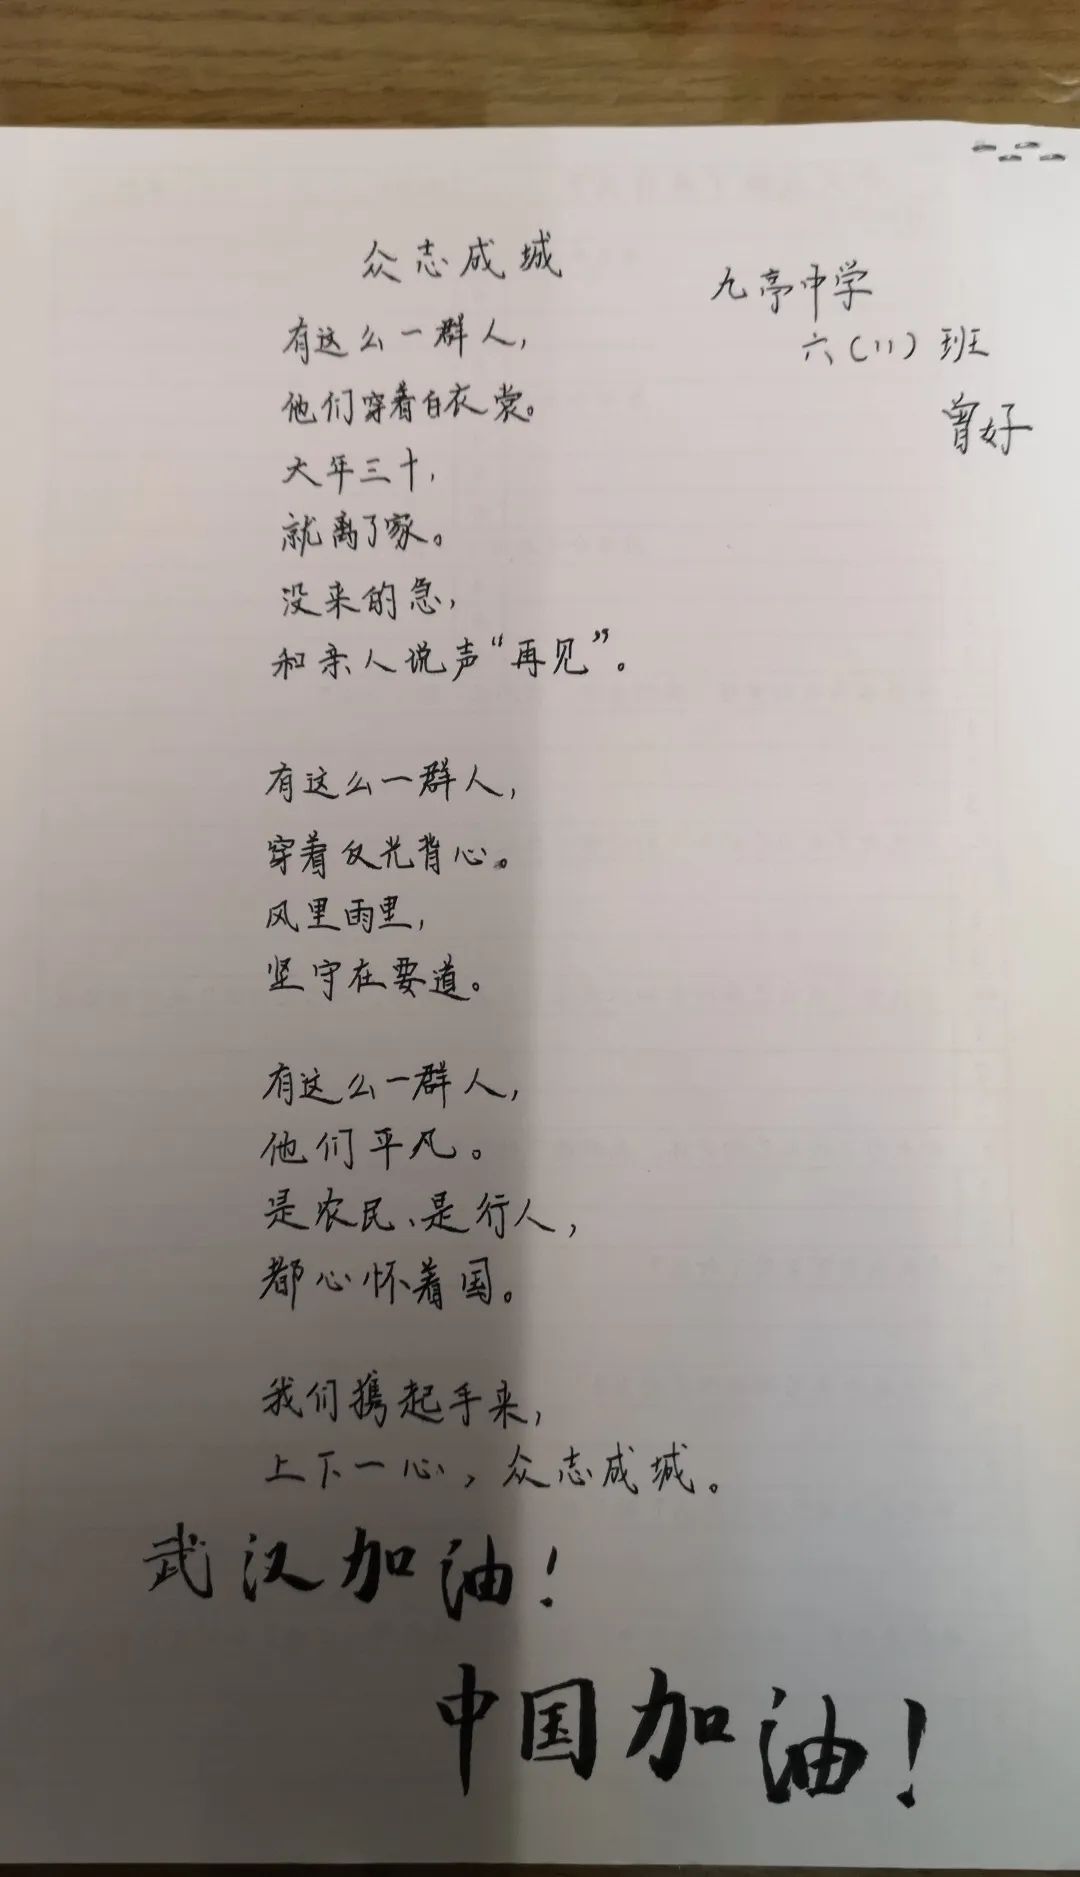 众志成城
九亭中学
六(11)班
曾好
有这么一群人,
他们穿着白衣裳。
大年三十,
就离了家。
没来的急,
和亲人说声“再见”。
有这么一群人,
穿着反光背心。
风里雨里,
坚守在要道。
有这么一群人,
他们平凡。
是农民、是行人,
都心怀着国。
我们携起手来,
上下一心,众志成城。
武汉加油!
中国加油!